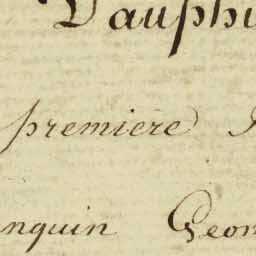 Dauphi
premiere
nquin Geor